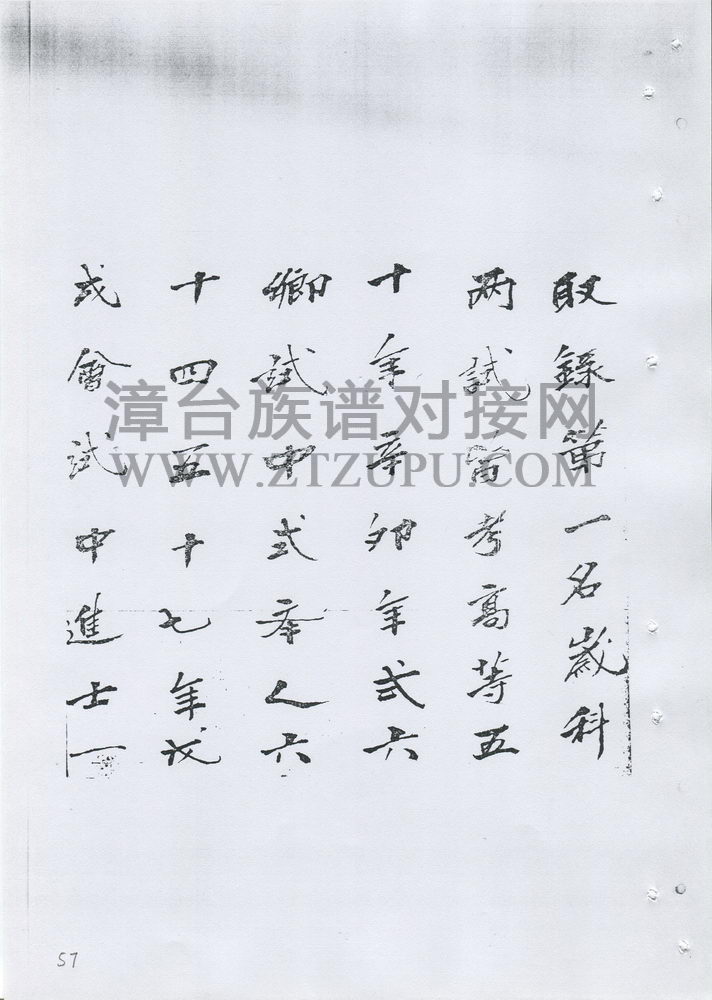 取錄第一名歲科
两試皆考高等五
十年辛卯年弍六
鄉試中式舉人六
十四五十七年戊
戌會試中進士一
漳台族谱对接网
WWW.ZTZUPU.COM
57